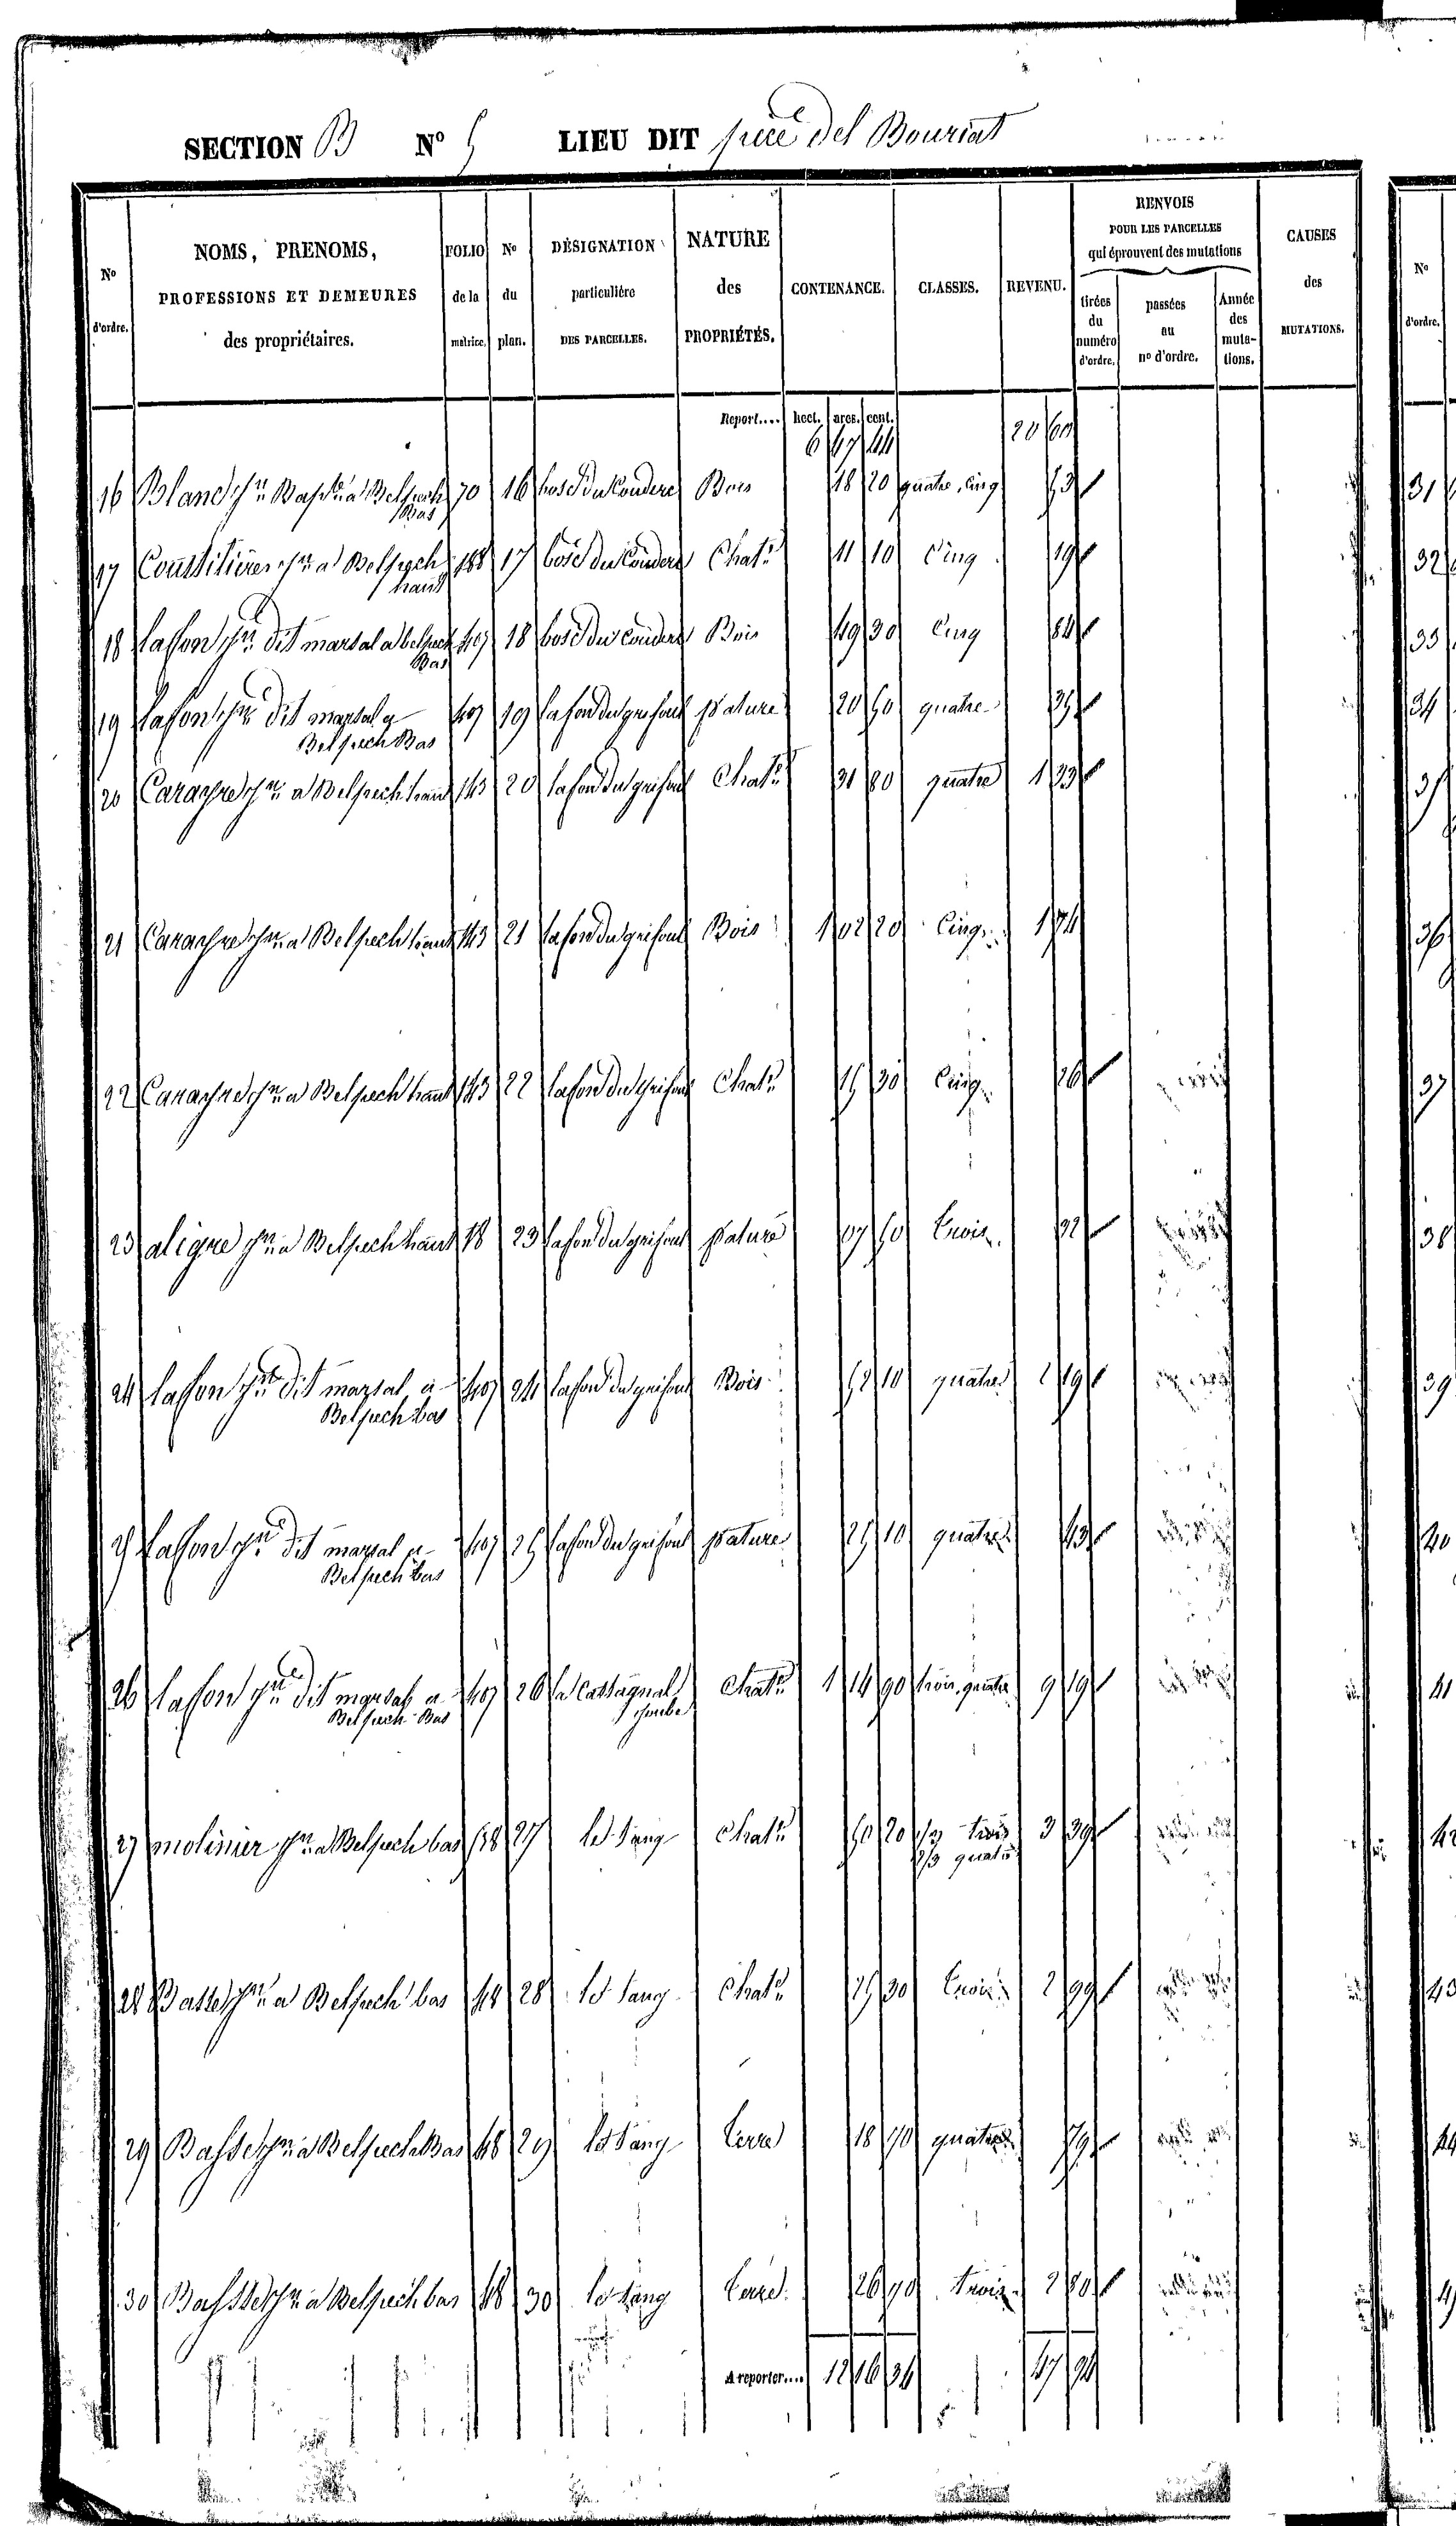 SECTION B N° 5 LIEU DIT pièce del Bouriat
N° d'ordre.
NOMS, PRENOMS, PROFESSIONS ET DEMEURES des propriétaires.
FOLIO de la matrice.
N° du plan.
DÉSIGNATION particulière DES PARCELLES.
NATURE des PROPRIÉTÉS.
CONTENANCE.
CLASSES.
REVENU.
RENVOIS POUR LES PARCELLES qui éprouvent des mutations
tirées du numéro d'ordre.
passées au n° d'ordre.
Année des mutations.
CAUSES des MUTATIONS.
N° d'ordre.
Report.... hect. ares. cent.
6 47 44 20 60
16 Blanc Jn Bapte a Belpech Bas 70 16 bosc du Couderc Bois 18 20 quatre, cinq 53
17 Jn a Belpech haut 188 17 bosc du Couderc Chatr 11 10 Cinq 19
18 laffon Jn dit marsal a belpech Bas 407 18 bosc du Couderc Bois 49 30 Cinq 84
19 laffon Jn dit marsal a Belpech Bas 407 19 lafon du grifoul pature 20 50 quatre 35
20 Carayre Jn a Belpech haut 143 20 lafon du grifoul Chatr 31 80 quatre 1 33
21 Carayre Jn a Belpech haut 143 21 lafon du grifoul Bois 1 02 20 Cinq 1 74
22 Carayre Jn a Belpech haut 143 22 lafon du grifoul Chatr 15 30 Cinq 26
23 aligre Jn a Belpech haut 18 23 lafon du grifoul pature 07 50 trois 22
24 laffon Jn dit marsal a Belpech bas 407 24 lafon du grifoul Bois 52 10 quatre 2 19
25 laffon Jn dit marsal a Belpech bas 407 25 lafon du grifoul pature 25 10 quatre 43
26 laffon Jn dit marsal a Belpech Bas 407 26 la Castagnal Chatr 1 14 90 trois, quatre 9 19
27 molinier Jn a Belpech bas 538 27 Chatr 50 20 1/3 trois 2/3 quatre 3 39
28 Basset Jn a Belpech bas 48 28 Chatr 25 30 trois 2 99
29 Basset Jn a Belpech Bas 48 29 terre 18 70 quatre 79
30 Basset Jn a Belpech bas 48 30 terre 26 70 trois 2 80
A reporter.... 12 16 34 47 94
31
32
33
34
35
36
37
38
39
40
41
42
43
44
45